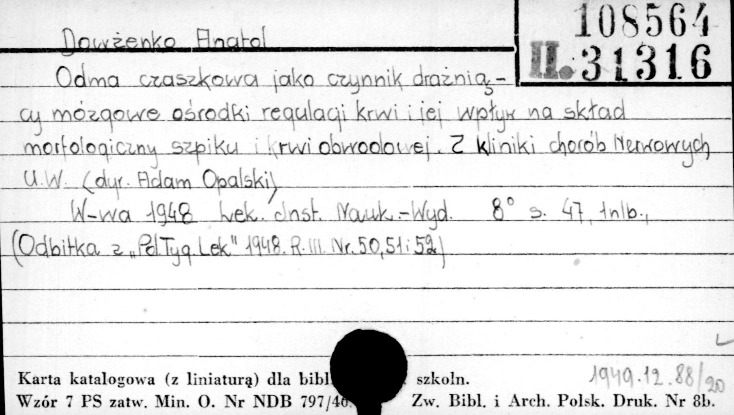 108564
II. 31316
Dowżenko Anatol
Odma czaszkowa jako czynnik drażnią-
cy mózgowe ośrodki regulacji krwi i jej wpływ na skład
morfologiczny szpiku i krwi obwodowej. Z kliniki chorób Nerwowych
U.W. (dyr. Adam Opalski)
W-wa 1948 Lek. Inst. Nauk.-Wyd. 8° s. 47, 1nlb.,
(Odbitka z „Pol.Tyg.Lek" 1948. R.III. Nr. 50, 51 i 52)
Karta katalogowa (z liniaturą) dla bibl szkoln.
Wzór 7 PS zatw. Min. O. Nr NDB 797/46 Zw. Bibl. i Arch. Polsk. Druk. Nr 8b.
1949.12.88/20